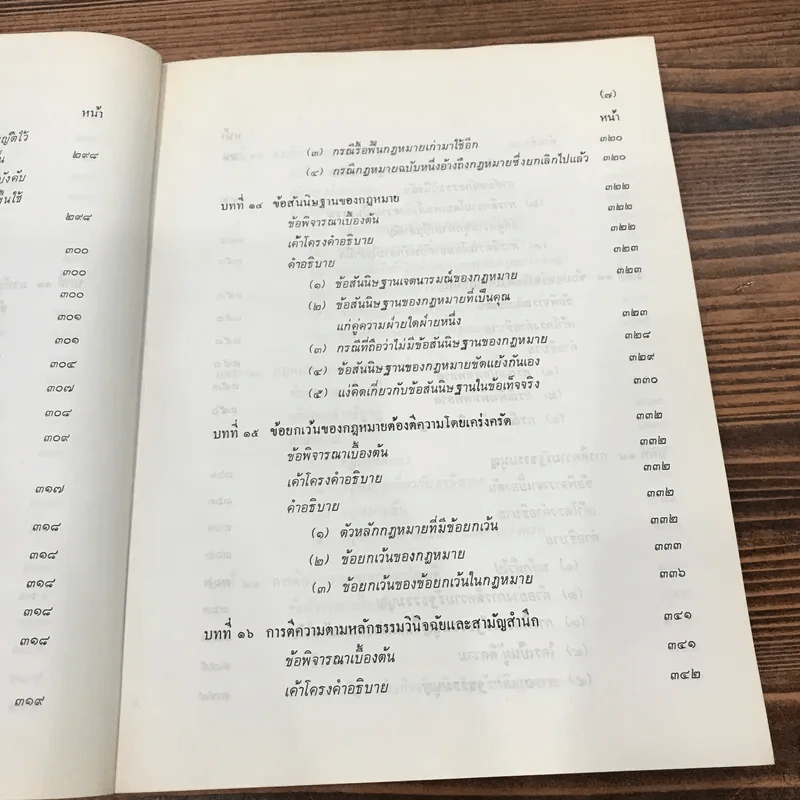 หน้า
ญัติไว้
๒๙๘
บังคับ
ขึ้นใช้
๒๙๘
๓๐๐
๓๐๐
๓๐๐
๓๐๑
๓๐๑
๓๐๔
๓๐๗
๓๐๘
๓๐๙
๓๑๗
๓๑๘
๓๑๘
๓๑๘
๓๑๘
๓๑๘
๓๑๙
(๗)
หน้า
(๓) กรณีรื้อฟื้นกฎหมายเก่ามาใช้อีก ๓๒๐
(๔) กรณีกฎหมายฉบับหนึ่งอ้างถึงกฎหมายซึ่งยกเลิกไปแล้ว ๓๒๐
บทที่ ๑๔ ข้อสันนิษฐานของกฎหมาย ๓๒๒
ข้อพิจารณาเบื้องต้น ๓๒๒
เค้าโครงคำอธิบาย ๓๒๒
คำอธิบาย ๓๒๓
(๑) ข้อสันนิษฐานเจตนารมณ์ของกฎหมาย ๓๒๓
(๒) ข้อสันนิษฐานของกฎหมายที่เป็นคุณ
แก่คู่ความฝ่ายใดฝ่ายหนึ่ง ๓๒๓
(๓) กรณีที่ถือว่าไม่มีข้อสันนิษฐานของกฎหมาย ๓๒๘
(๔) ข้อสันนิษฐานของกฎหมายขัดแย้งกันเอง ๓๒๙
(๕) แง่คิดเกี่ยวกับข้อสันนิษฐานในข้อเท็จจริง ๓๓๐
บทที่ ๑๕ ข้อยกเว้นของกฎหมายต้องตีความโดยเคร่งครัด ๓๓๒
ข้อพิจารณาเบื้องต้น ๓๓๒
เค้าโครงคำอธิบาย ๓๓๒
คำอธิบาย ๓๓๒
(๑) ตัวหลักกฎหมายที่มีข้อยกเว้น ๓๓๒
(๒) ข้อยกเว้นของกฎหมาย ๓๓๓
(๓) ข้อยกเว้นของข้อยกเว้นในกฎหมาย ๓๓๖
บทที่ ๑๖ การตีความตามหลักธรรมวินิจฉัยและสามัญสำนึก ๓๔๑
ข้อพิจารณาเบื้องต้น ๓๔๑
เค้าโครงคำอธิบาย ๓๔๒